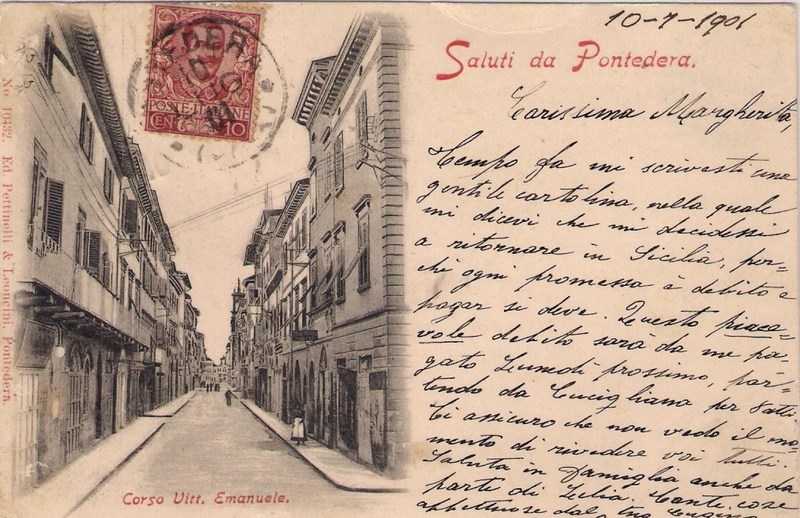 10-7-1901
Saluti da Pontedera.
Carissima Margherita,
Tempo fa mi scrivesti una
gentile cartolina, nella quale
mi dicevi che mi decidessi
a ritornare in Sicilia, per-
chè ogni promessa è debito e
pagar si deve. Questo piace-
vole debito sarà da me pa-
gato Lunedì prossimo, par-
tendo da Cucigliana per
Ti assicuro che non vedo il mo-
mento di rivedere voi tutti.
Saluta in famiglia anche da
parte di Lelia. Tante cose
affettuose dal tuo Eugenio
POSTE ITALIANE
CENT 10
EDERA
Corso Vitt. Emanuele.
No. 10432. Ed. Pettinelli & Leoncini, Pontedera.